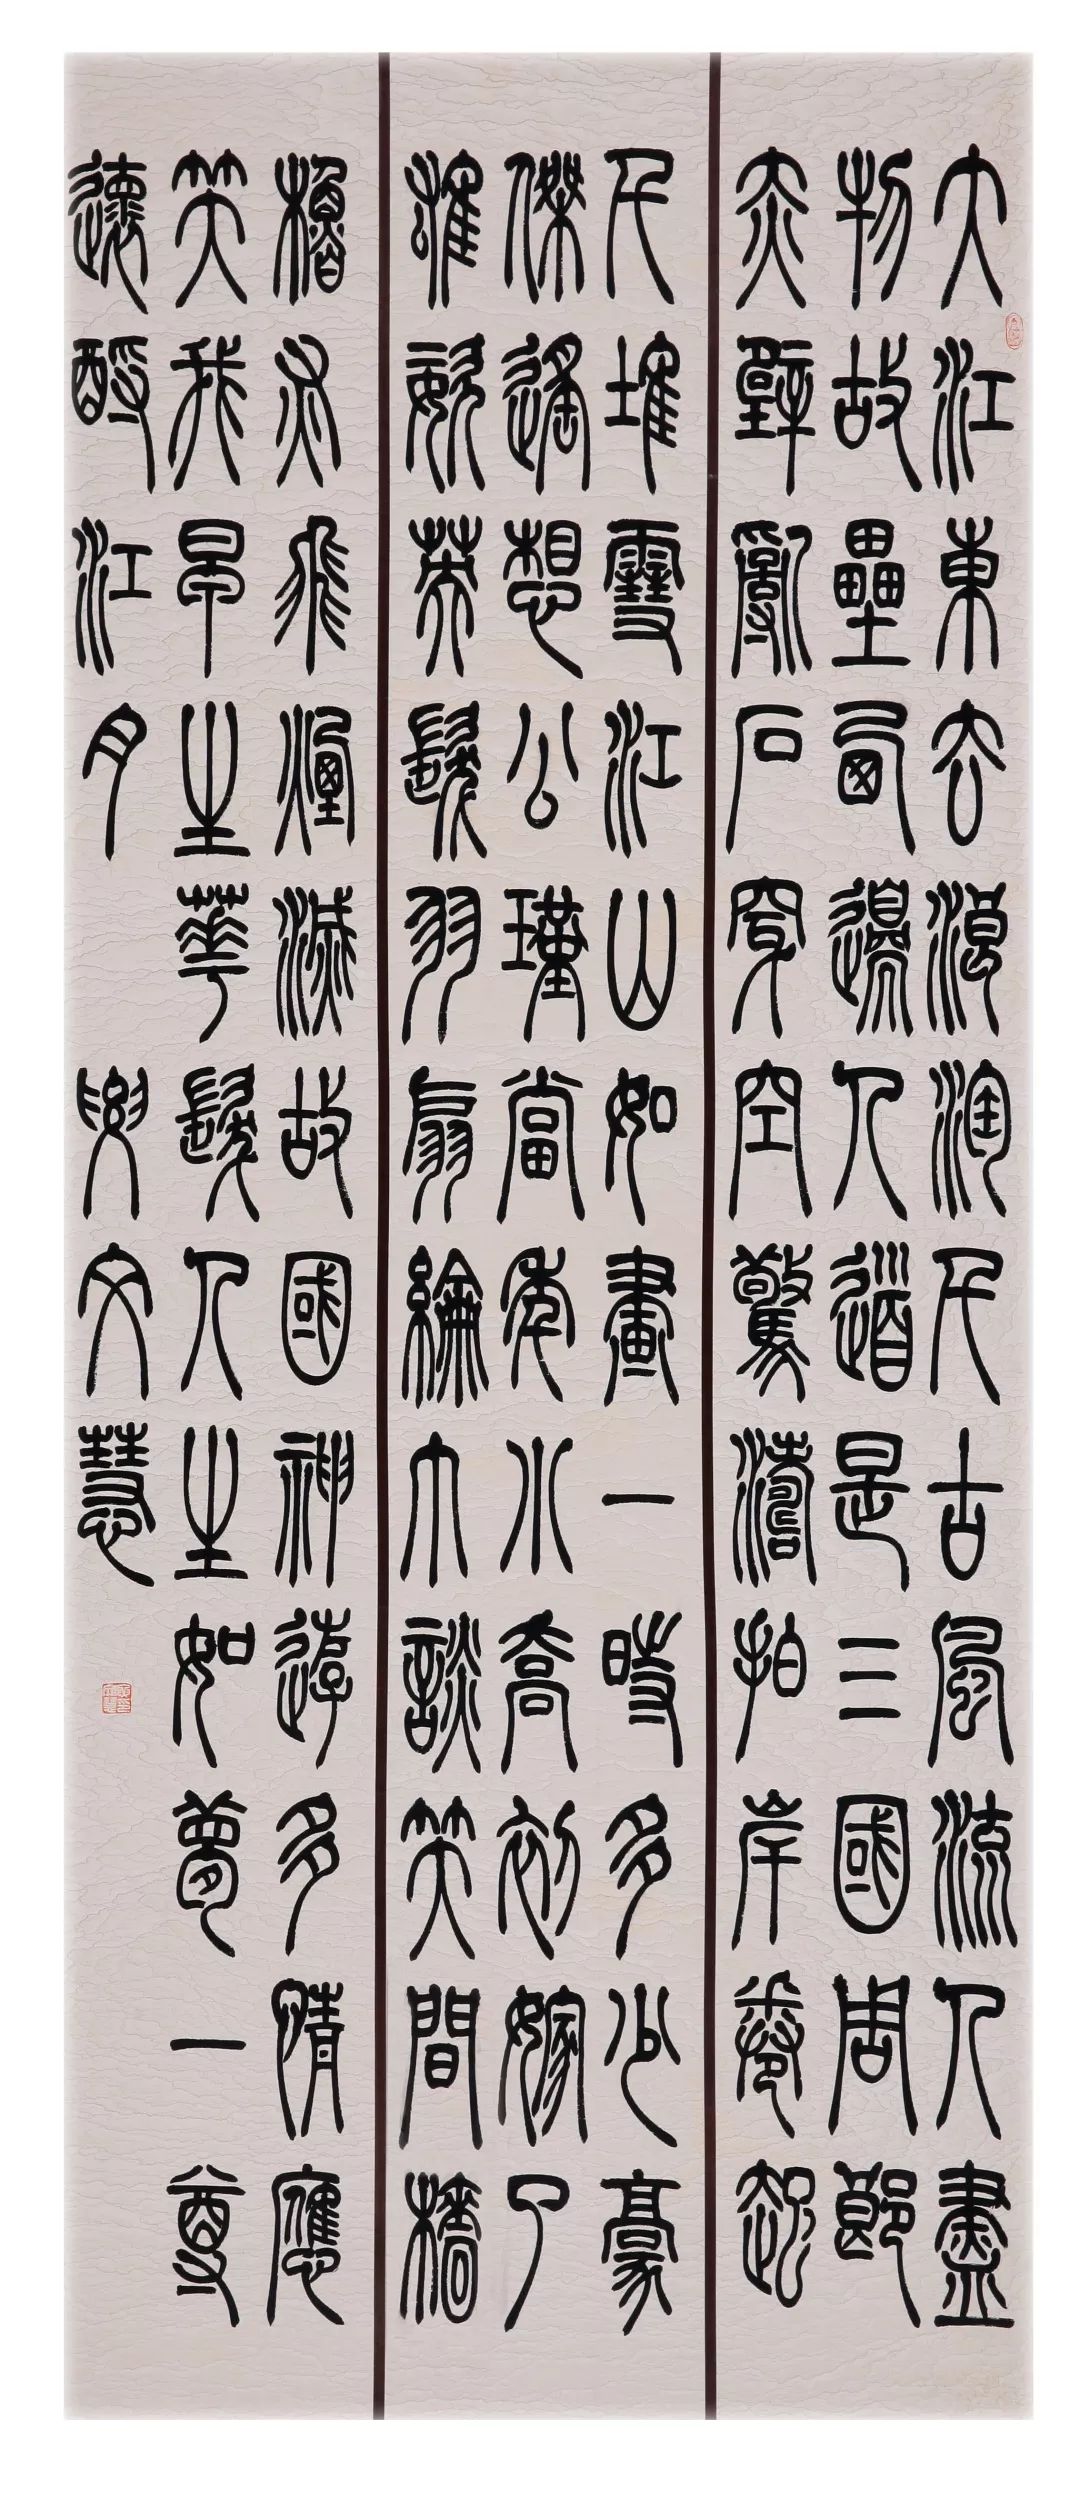 大江東去浪淘千古風流人盡
物故壘西邊人道是三國周郎
赤壁亂石穿空驚濤拍岸卷起
千堆雪江山如畫一時多少豪
傑遙想公瑾當年小喬初嫁了
雄姿英發羽扇綸巾談笑間檣
櫓灰飛煙滅故國神遊多情應
笑我早生華髮人生如夢一尊
還酹江月 文慧